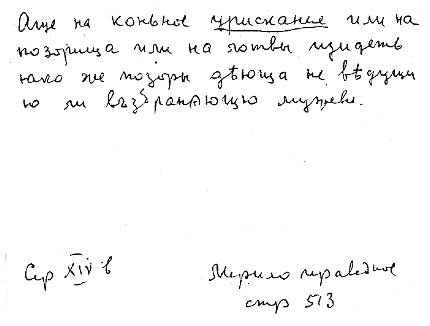 Аще на коньное урискание или на
позорища или на ловвы изидеть
яко же позоры дѣюща не вѣдущи
ю ли възбраняющю мужеви.
Сер XIV в
Мерило праведное
стр 513